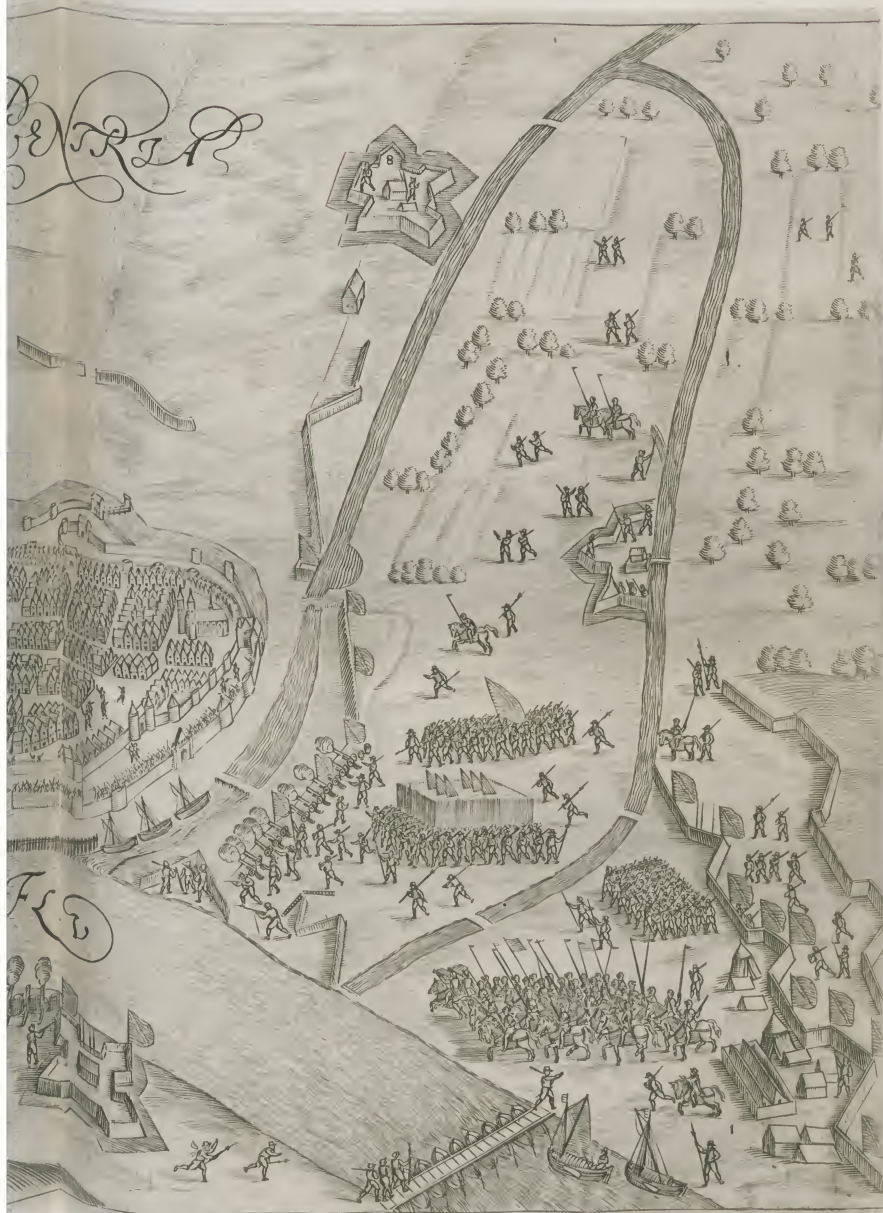 VENTRIA
B
FLV